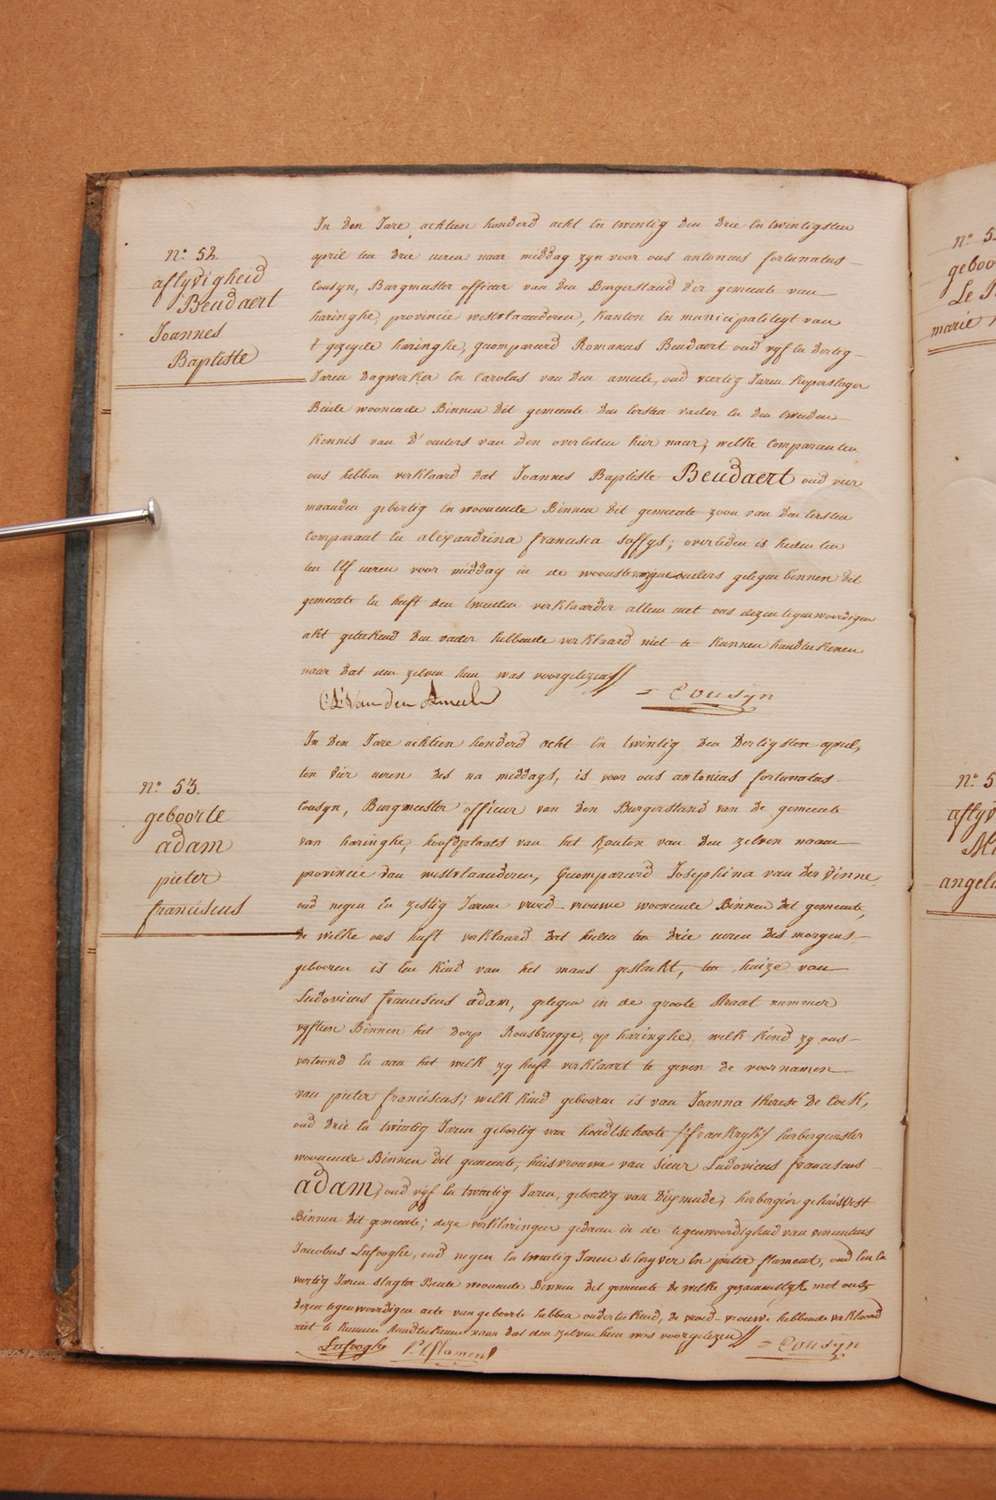 N.º 52.
aflyvigheid
Beudaert
Joannes
Baptiste
In den Jare achtien honderd acht En twintig den drie En twintigsten
april ten drie uren naar middag zyn voor ons antonius fortunatus
Cousyn, Burgmeester officier van den Burgerstand der gemeente van
haringhe, provincie westvlaanderen, kanton En municipaliteyt van
't gezeyde haringhe, gecompareerd Romanus Beudaert oud vyf En dertig
Jaren Dagwerker En Carolus van den ameele, oud viertig Jaren kuperslager
Beide wonende Binnen dit gemeente den Eersten vader En den tweeden
kennis van d'ouders van den overleden hier naar, welke Comparanten
ons hebben verklaard dat Joannes Baptiste Beudaert oud vier
maanden geboortig En woonende Binnen dit gemeente zoon van den Eersten
Comparant En alexandrina francisca soffys; overleden is heden ten
ten Elf uren voor middag in de woonste zyne ouders gelegen binnen dit
gemeente En heeft den tweeden verklaarder alleen met ons dezen tegenwoordigen
akt geteekend den vader hebbende verklaard niet te kunnen handteekenen
naar dat den zelven hun was voorgelezen
C L Van den Ameele = Cousyn
N.º 53.
geboorte
adam
pieter
franciscus
In den Jare achtien honderd acht En twintig den dertigsten april,
ten vier uren des na middags, is voor ons antonius fortunatus
Cousyn, Burgmeester officier van den Burgerstand van de gemeente
van haringhe, hoofdplaats van het kanton van den zelven naam
provincie van westvlaanderen, Gecompareerd Josephina van der vinne
oud negen En zestig Jaren vroed-vrouwe woonende Binnen dit gemeente,
de welke ons heeft verklaard dat heden ten drie uren des morgens
gebooren is Een kind van het mans geslacht, ten huize van
Ludovicus franciscus adam, gelegen in de groote straat nummer
vyftien Binnen het dorp Rousbrugge, op haringhe, welk kind zy ons
vertoond En aan het welk zy heeft verklaart te geven de voornamen
van pieter franciscus; welk kind gebooren is van Joanna therese De Cock,
oud drie En twintig Jaren geboortig van hondtschoote /:frankryk:/ herbergierster
woonende Binnen dit gemeente, huisvrouwe van sieur Ludovicus franciscus
adam, oud vyf En twintig Jaren, geboortig van Dixmude, herbergier gehuisvest
Binnen dit gemeente; deze verklaringen gedaan in de tegenwoordigheid van
Jacobus Lafooghe, oud negen En twintig Jaren En pieter flament, oud Een En
viertig Jaren slagter Beide woonende Binnen dit gemeente De welke gezamentlyk met ons
dezen tegenwoordigen acte van geboorte hebben onderteekend, de vroed-vrouwe hebbende verklaard
niet te kunnen handteekenen naar dat den zelven hun was voorgelezen
Lafooghe P. Flament = Cousyn
N.º 5
geboo
Le
marie
N.º 5
aflyv
angela